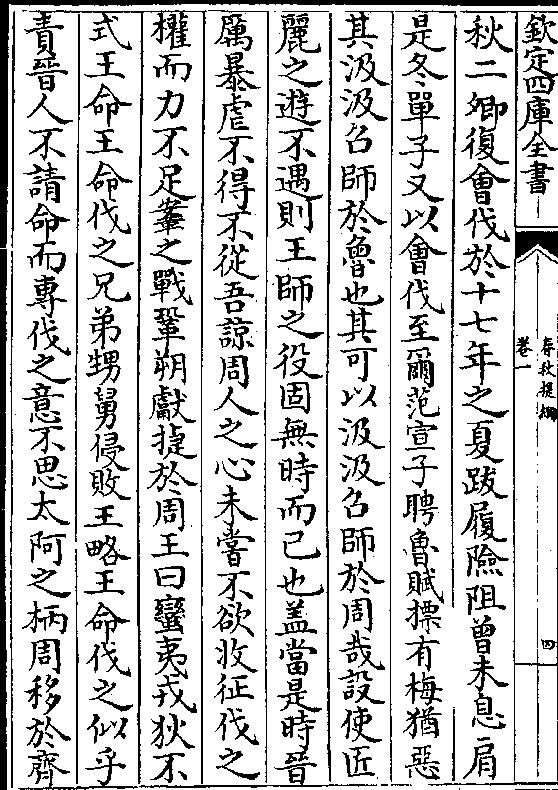 欽定四庫全書
春秋提綱
卷一
四
秋二卿復會伐於十七年之夏跋履險阻曽未息肩
是冬單子又以會伐至爾范宣子聘魯賦摽有梅猶惡
其汲汲召師於魯也其可以汲汲召師於周哉設使匠
麗之遊不遇則王師之役固無時而已也盖當是時晉
厲暴虐不得不從吾諒周人之心未嘗不欲收征伐之
權而力不足鞌之戰鞏朔獻捷於周王曰蠻夷戎狄不
式王命王命伐之兄弟甥舅侵敗王略王命伐之似乎
責晉人不請命而專伐之意不思太阿之柄周移於齊